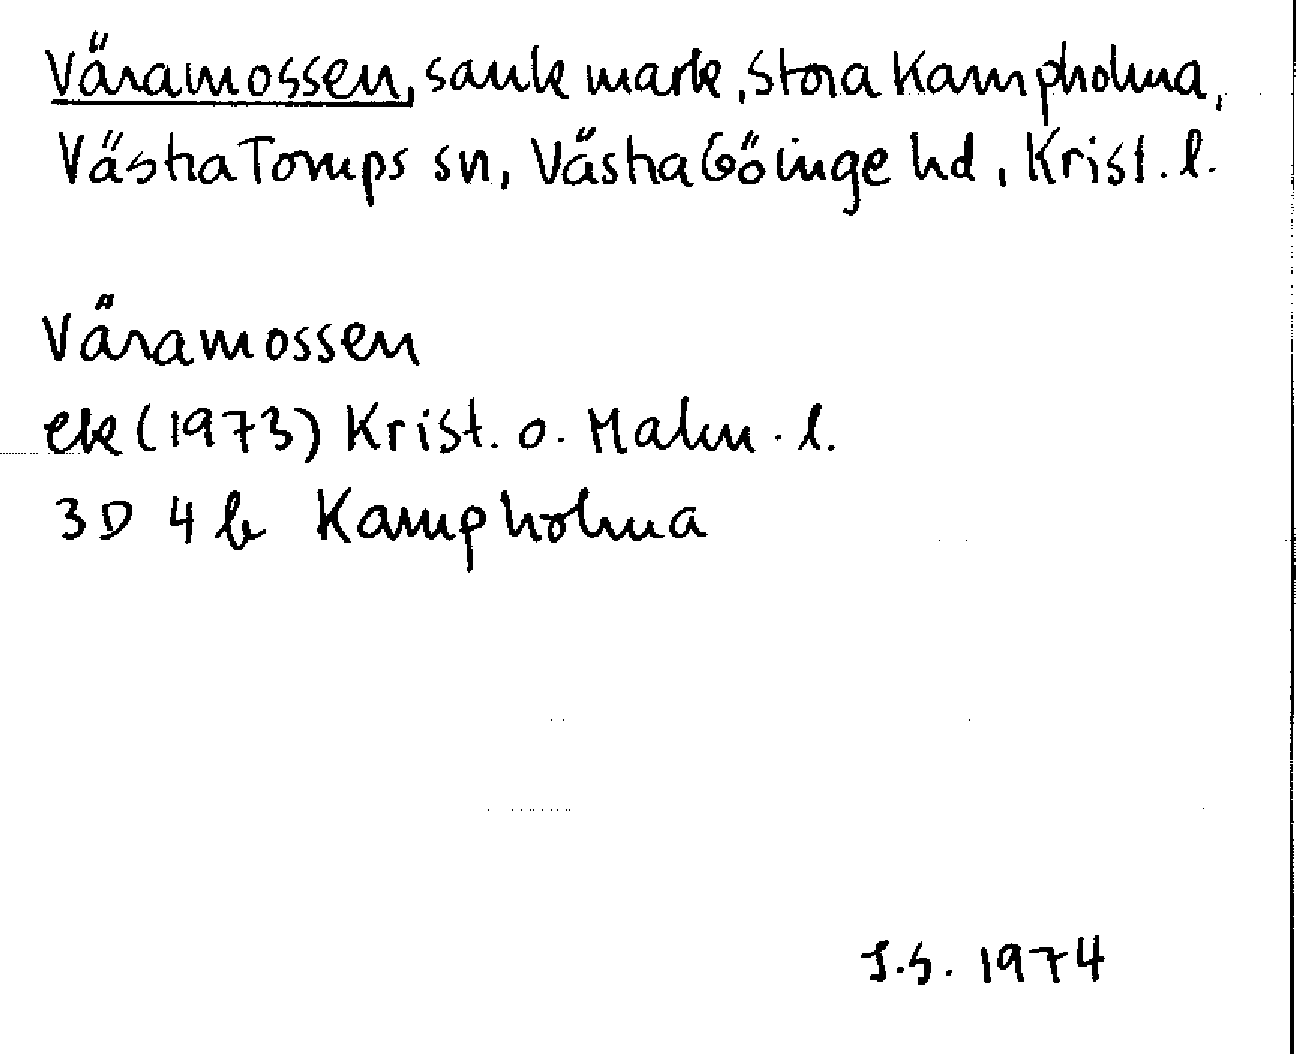 Väramossen, sank mark, Stora Kampholma,
Västra Torups sn, Västra Göinge hd, Krist. l.
Väramossen
ek (1973) Krist. o. Malm. l.
3D 4b Kampholma
I.S. 1974